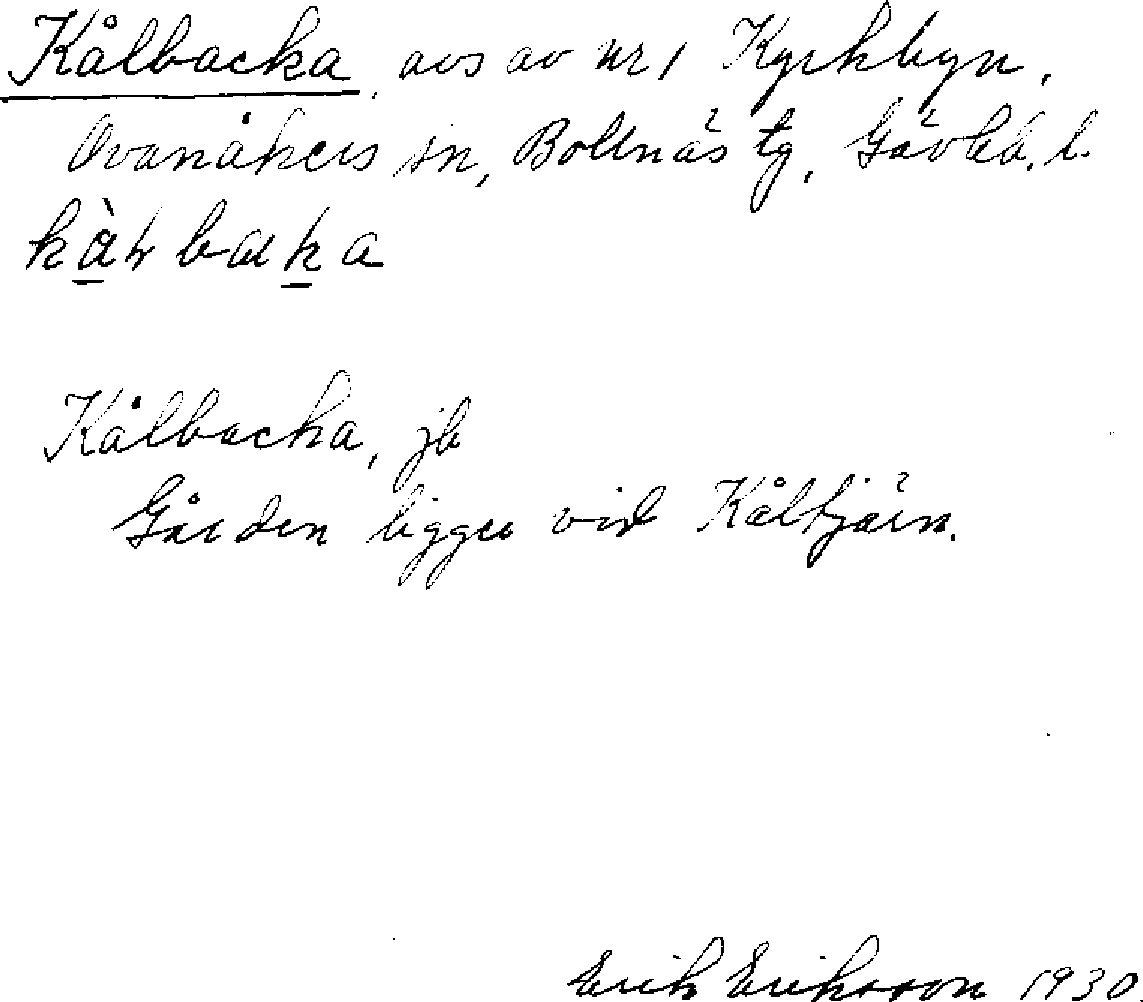 Kålbacka, avs av nr 1 Kyrkbyn,
Ovanåkers sn, Bollnäs tg, Gävlb. l.
Kålbacka, jb
Gården ligger vid Kåltjärn.
Erik Eriksson 1930